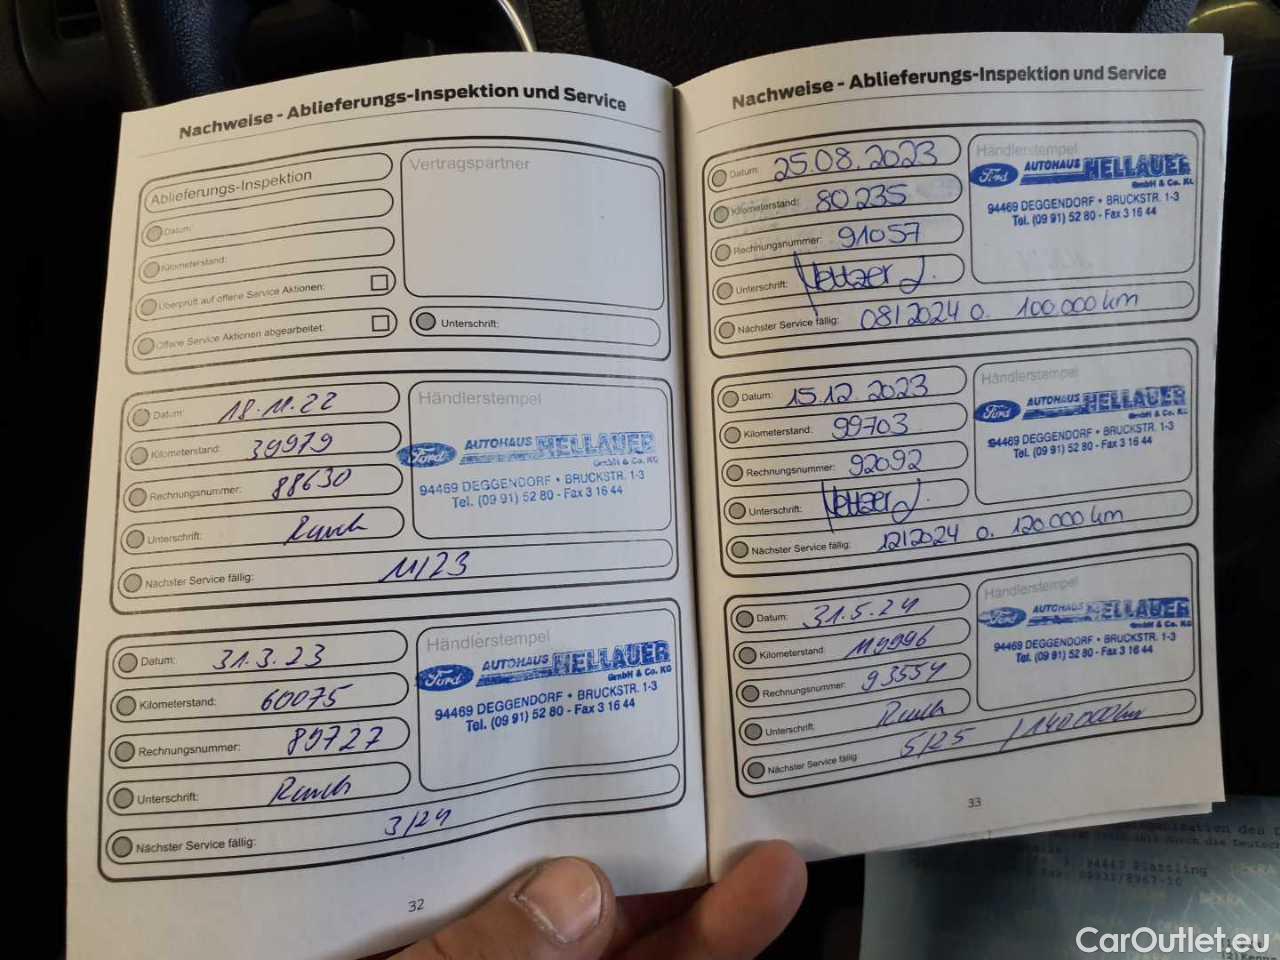 Nachweise - Ablieferungs-Inspektion und Service
Ablieferungs-Inspektion
Datum:
Kilometerstand:
Überprüft auf offene Service Aktionen:
Offene Service Aktionen abgearbeitet:
Vertragspartner
Unterschrift:
Datum: 18.11.22
Kilometerstand: 39979
Rechnungsnummer: 88630
Unterschrift: Rauch
Nächster Service fällig: 11/23
Händlerstempel
Ford AUTOHAUS HELLAUER
GmbH & Co. KG
94469 DEGGENDORF • BRUCKSTR. 1-3
Tel. (09 91) 52 80 - Fax 3 16 44
Datum: 31.3.23
Kilometerstand: 60075
Rechnungsnummer: 89727
Unterschrift: Rauch
Nächster Service fällig: 3/24
Händlerstempel
Ford AUTOHAUS HELLAUER
GmbH & Co. KG
94469 DEGGENDORF • BRUCKSTR. 1-3
Tel. (09 91) 52 80 - Fax 3 16 44
32
Nachweise - Ablieferungs-Inspektion und Service
Datum: 25.08.2023
Kilometerstand: 80235
Rechnungsnummer: 91057
Unterschrift:
Nächster Service fällig: 08/2024 o. 100.000km
Händlerstempel
Ford AUTOHAUS HELLAUER
GmbH & Co. KG
94469 DEGGENDORF • BRUCKSTR. 1-3
Tel. (09 91) 52 80 - Fax 3 16 44
Datum: 15.12.2023
Kilometerstand: 99703
Rechnungsnummer: 92092
Unterschrift:
Nächster Service fällig: 12/2024 o. 120.000km
Händlerstempel
Ford AUTOHAUS HELLAUER
GmbH & Co. KG
94469 DEGGENDORF • BRUCKSTR. 1-3
Tel. (09 91) 52 80 - Fax 3 16 44
Datum: 31.5.24
Kilometerstand: 119996
Rechnungsnummer: 93554
Unterschrift: Rauch
Nächster Service fällig: 5/25 / 140000km
Händlerstempel
Ford AUTOHAUS HELLAUER
GmbH & Co. KG
94469 DEGGENDORF • BRUCKSTR. 1-3
Tel. (09 91) 52 80 - Fax 3 16 44
33
94447 Plattling
DEKRA
CarOutlet.eu